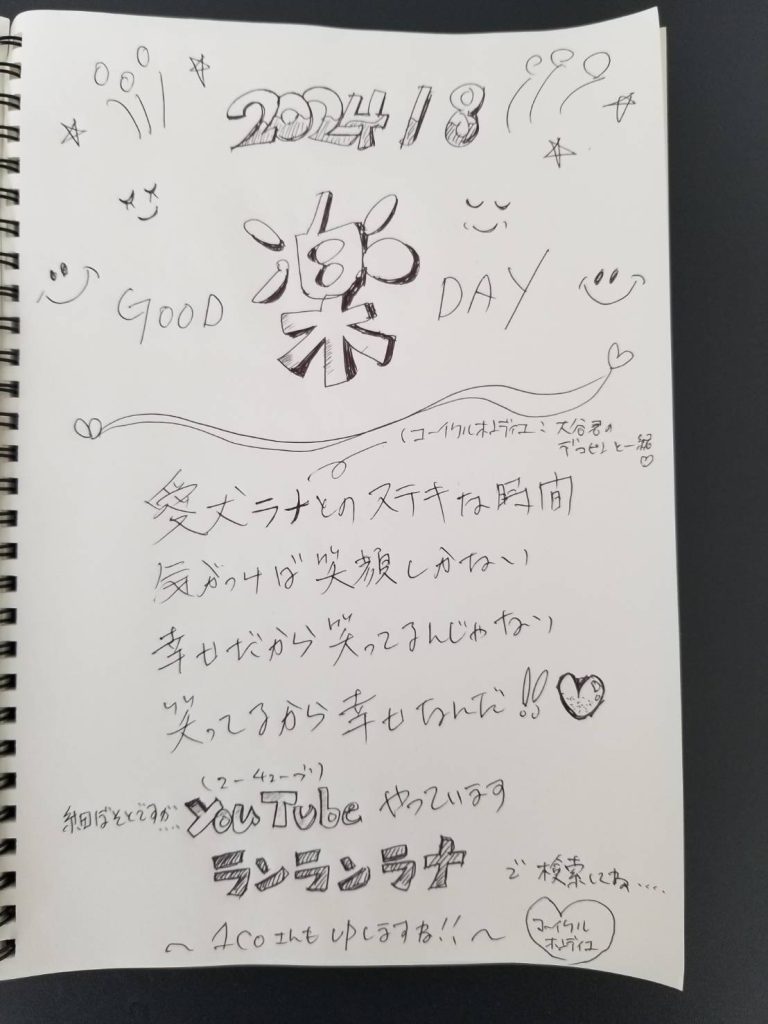 2024 1 8
GOOD 楽 DAY
(コーイケルホンディエ: 大谷君の
デコピンと一緒♡
愛犬ラナとのステキな時間
気がつけば笑顔しかない
幸せだから笑ってるんじゃない
笑ってるから幸せなんだ!!
(ユーチューブ)
細ぼそとですが... YouTube やっています
ランランラナ で検索してね....
~ 1coさんも upしますね!! ~
コーイケル
ホンディエ